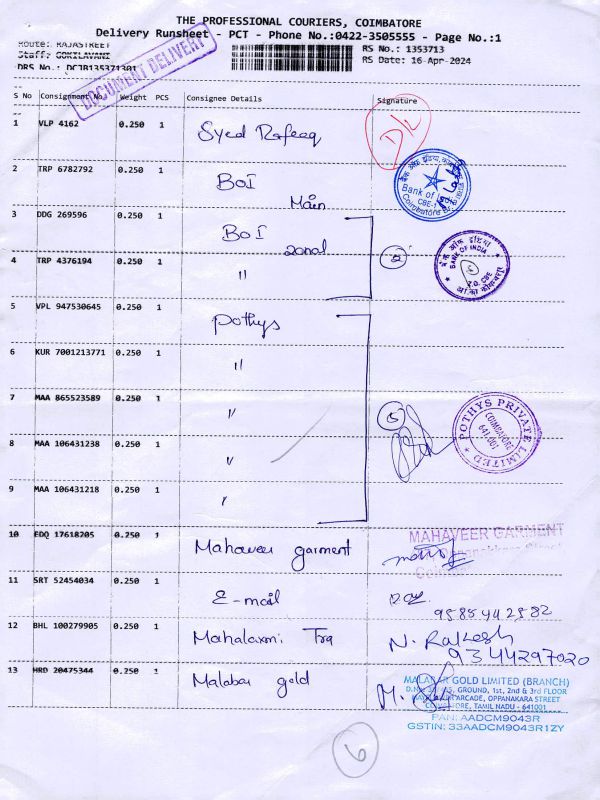 THE PROFESSIONAL COURIERS, COIMBATORE
Delivery Runsheet - PCT - Phone No.:0422-3505555 - Page No.:1
Route: RAJASTREET
Staff: GOKILAVANI
DRS No.: DCJB135371301
RS No.: 1353713
RS Date: 16-Apr-2024
DOCUMENT DELIVERY
S No Consignment No. Weight PCS Consignee Details Signature
1 VLP 4162 0.250 1 Syed Rafeeq
2 TRP 6782792 0.250 1 BOI Main
Bank of India
CBE-1
Coimbatore Br.
3 DDG 269596 0.250 1 BOI zonal
4 TRP 4376194 0.250 1 "
2
बैंक ऑफ इंडिया
BANK OF INDIA
Z.O. CBE
5 VPL 947530645 0.250 1 Pothys
6 KUR 7001213771 0.250 1 "
7 MAA 865523589 0.250 1 "
5
POTHYS PRIVATE LIMITED
COIMBATORE
641 001
8 MAA 106431238 0.250 1 "
9 MAA 106431218 0.250 1 "
10 EDQ 17618205 0.250 1 Mahaveer garment
MAHAVEER GARMENT
11 SRT 52454034 0.250 1 E-mail
12 BHL 100279905 0.250 1 Mahalaxmi Tra N. Rakesh
9344297020
13 HRD 20475344 0.250 1 Malabar gold
MALABAR GOLD LIMITED (BRANCH)
GROUND, 1st, 2nd & 3rd FLOOR
ARCADE, OPPANAKARA STREET
COIMBATORE, TAMIL NADU - 641001
PAN: AADCM9043R
GSTIN: 33AADCM9043R1ZY
6